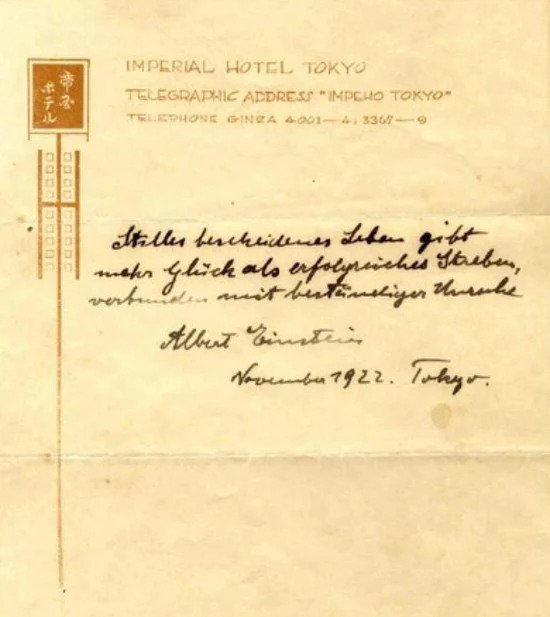 帝国
ホテル
IMPERIAL HOTEL TOKYO
TELEGRAPHIC ADDRESS "IMPEHO TOKYO"
TELEPHONE GINZA 4001—4, 3367—9
Stilles bescheidenes Leben gibt
mehr Glück als erfolgreiches Streben,
verbunden mit beständiger Unruhe
Albert Einstein
November 1922. Tokyo.